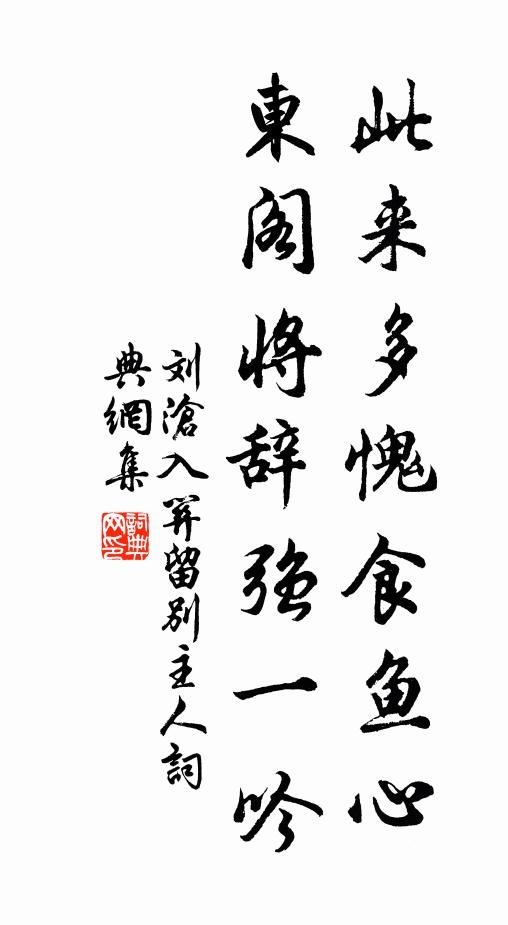 此来多愧食鱼心
東阁将辞强一吟
刘滄入関留别主人詞
典網集
詞典網印